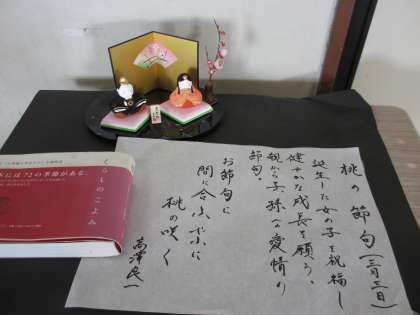 桃の節句(三月三日)
誕生した女の子を祝福し
健やかな成長を願う、
親から子、孫への愛情の
節句。
お節句に
間に合ふやふに
桃の咲く
高澤良一
くらしのこよみ
には72の季節がある。